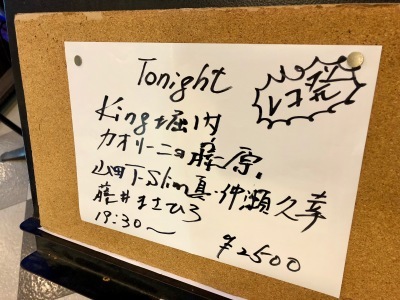 Tonight
レコ発
King堀内
カオリーニョ藤原.
山田T-Slim真・仲瀬久幸
藤井まさひろ
19:30〜
¥2500